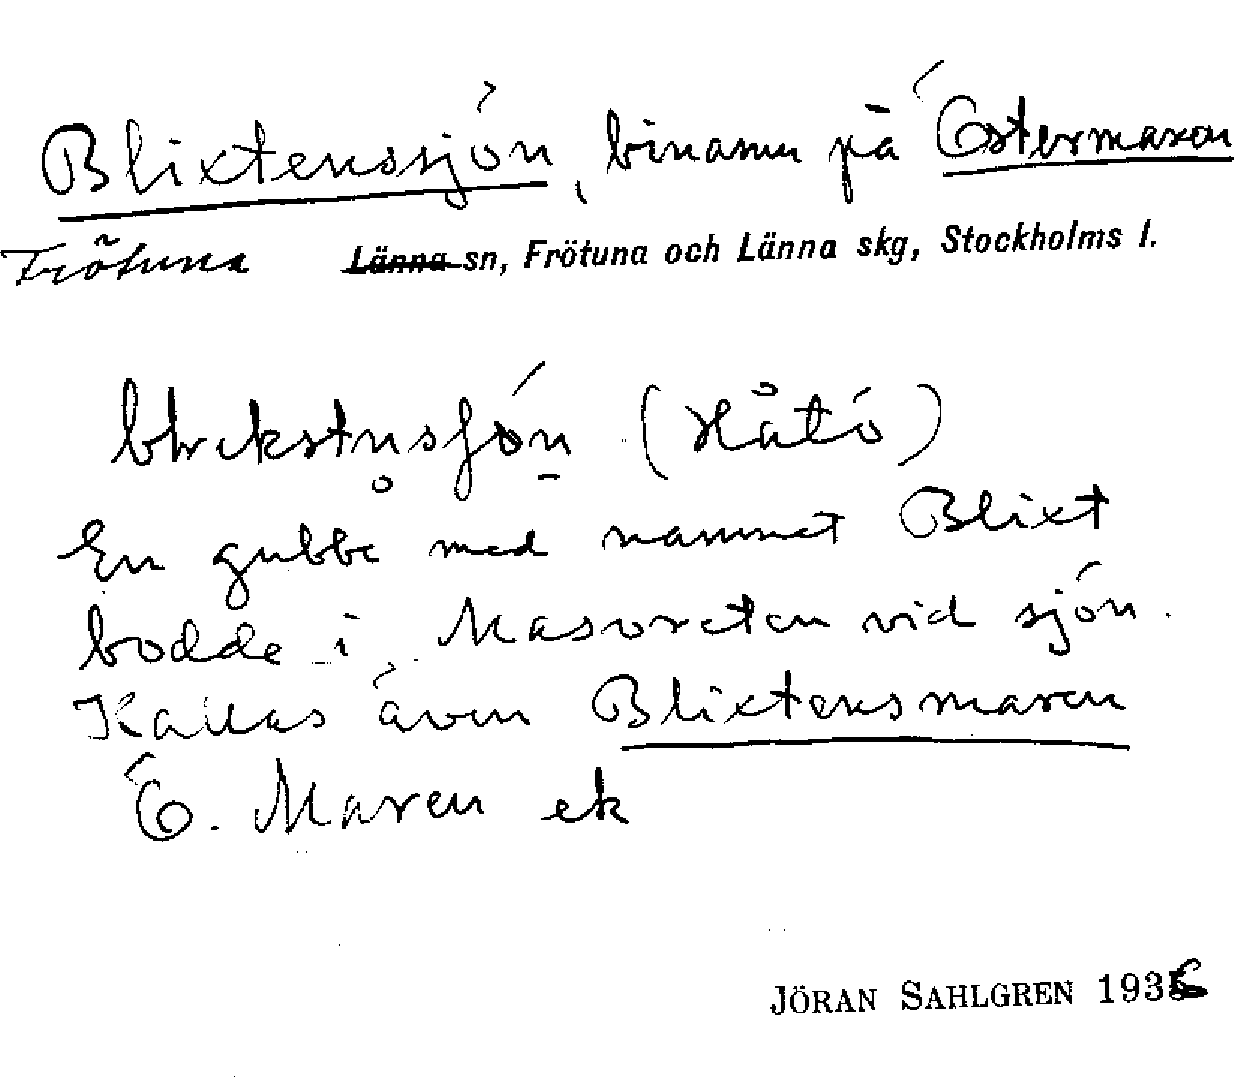 Blixtenssjön, binamn på Östermaren
Frötuna Länna sn, Frötuna och Länna skg, Stockholms l.
(Håtö)
En gubbe med namnet Blixt
bodde i Masoreten vid sjön.
Kallas även Blixtensmaren
Ö. Maren ek
JÖRAN SAHLGREN 1936